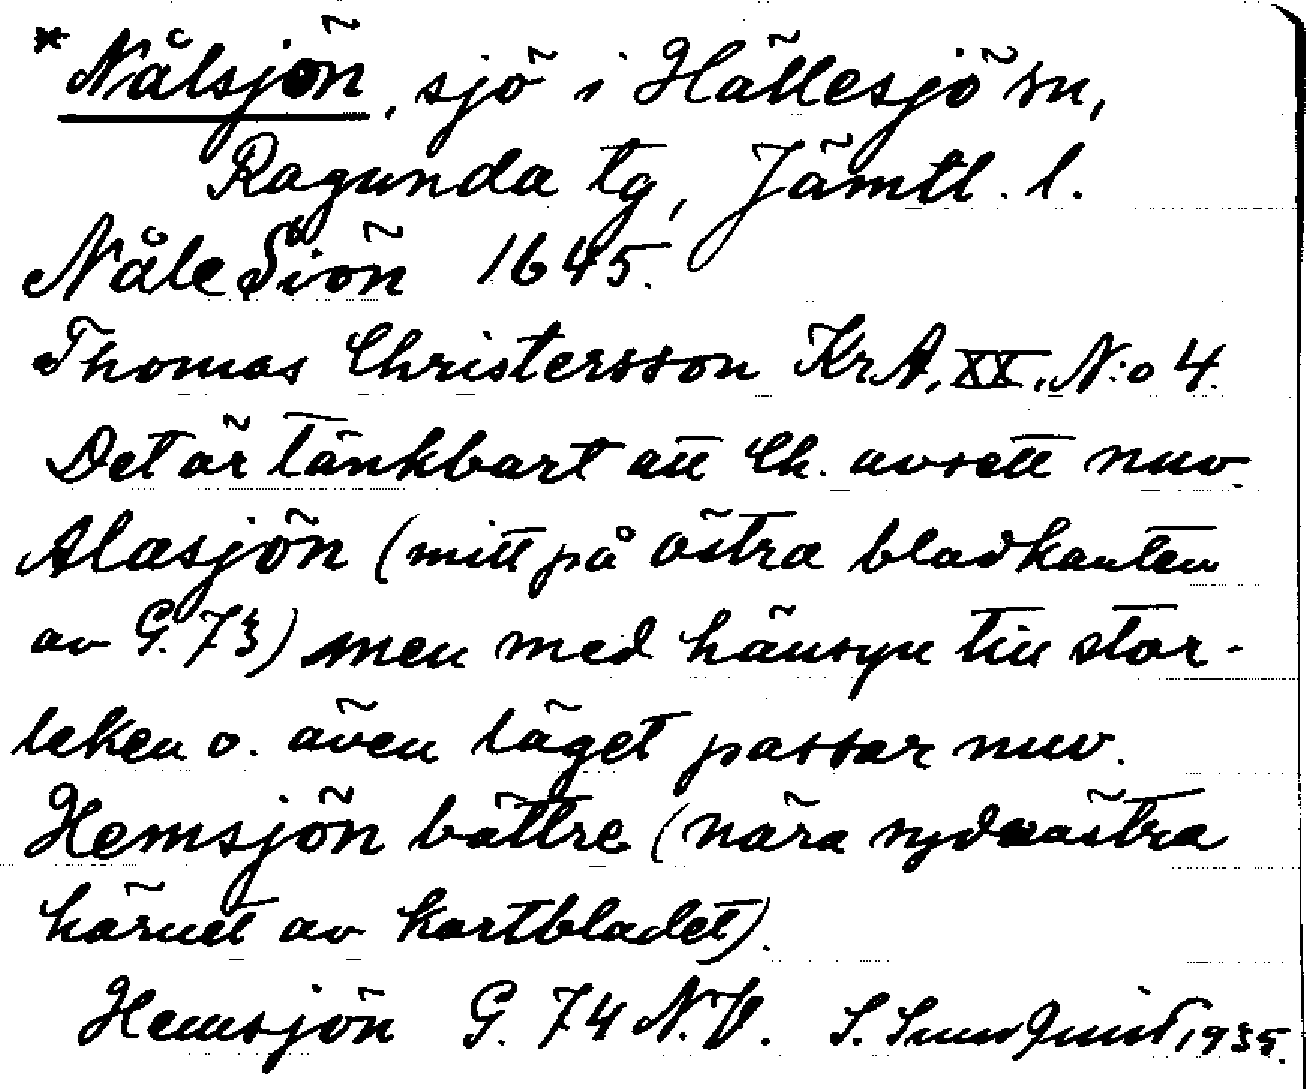 * Nålsjön, sjö i Hällesjö sn,
Ragunda tg, Jämtl. l.
Nåle Siön 1645.
Thomas Christersson Kr.A. XX. N:o 4.
Det är tänkbart att Ch. avsett nuv.
Alasjön (mitt på östra bladkanten
av G. 73) men med hänsyn till stor-
leken o. även läget passar nuv.
Hemsjön bättre (nära sydvästra
hörnet av kartbladet).
Hemsjön G. 74 N.V. S. Sundquist 1935.